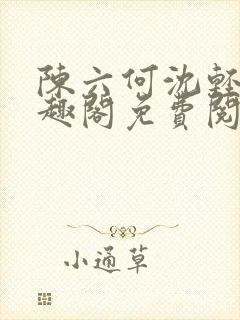 陳六何沈輕
趣閣免費閱
小通草